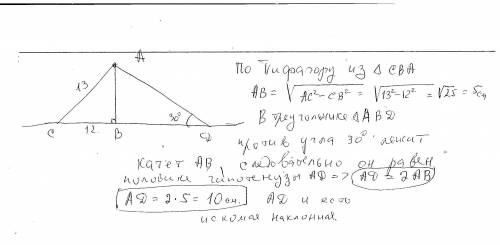 A
13
30°
C 12 B D
По Пифагору из △ CBA
AB = √AC²-CB² = √13²-12² = √25 = 5см
В треугольнике △ABD
против угла 30° лежит
катет AB, следовательно он равен
половине гипотенузы AD => AD = 2AB
AD = 2·5 = 10 см. AD и есть
искомая наклонная.